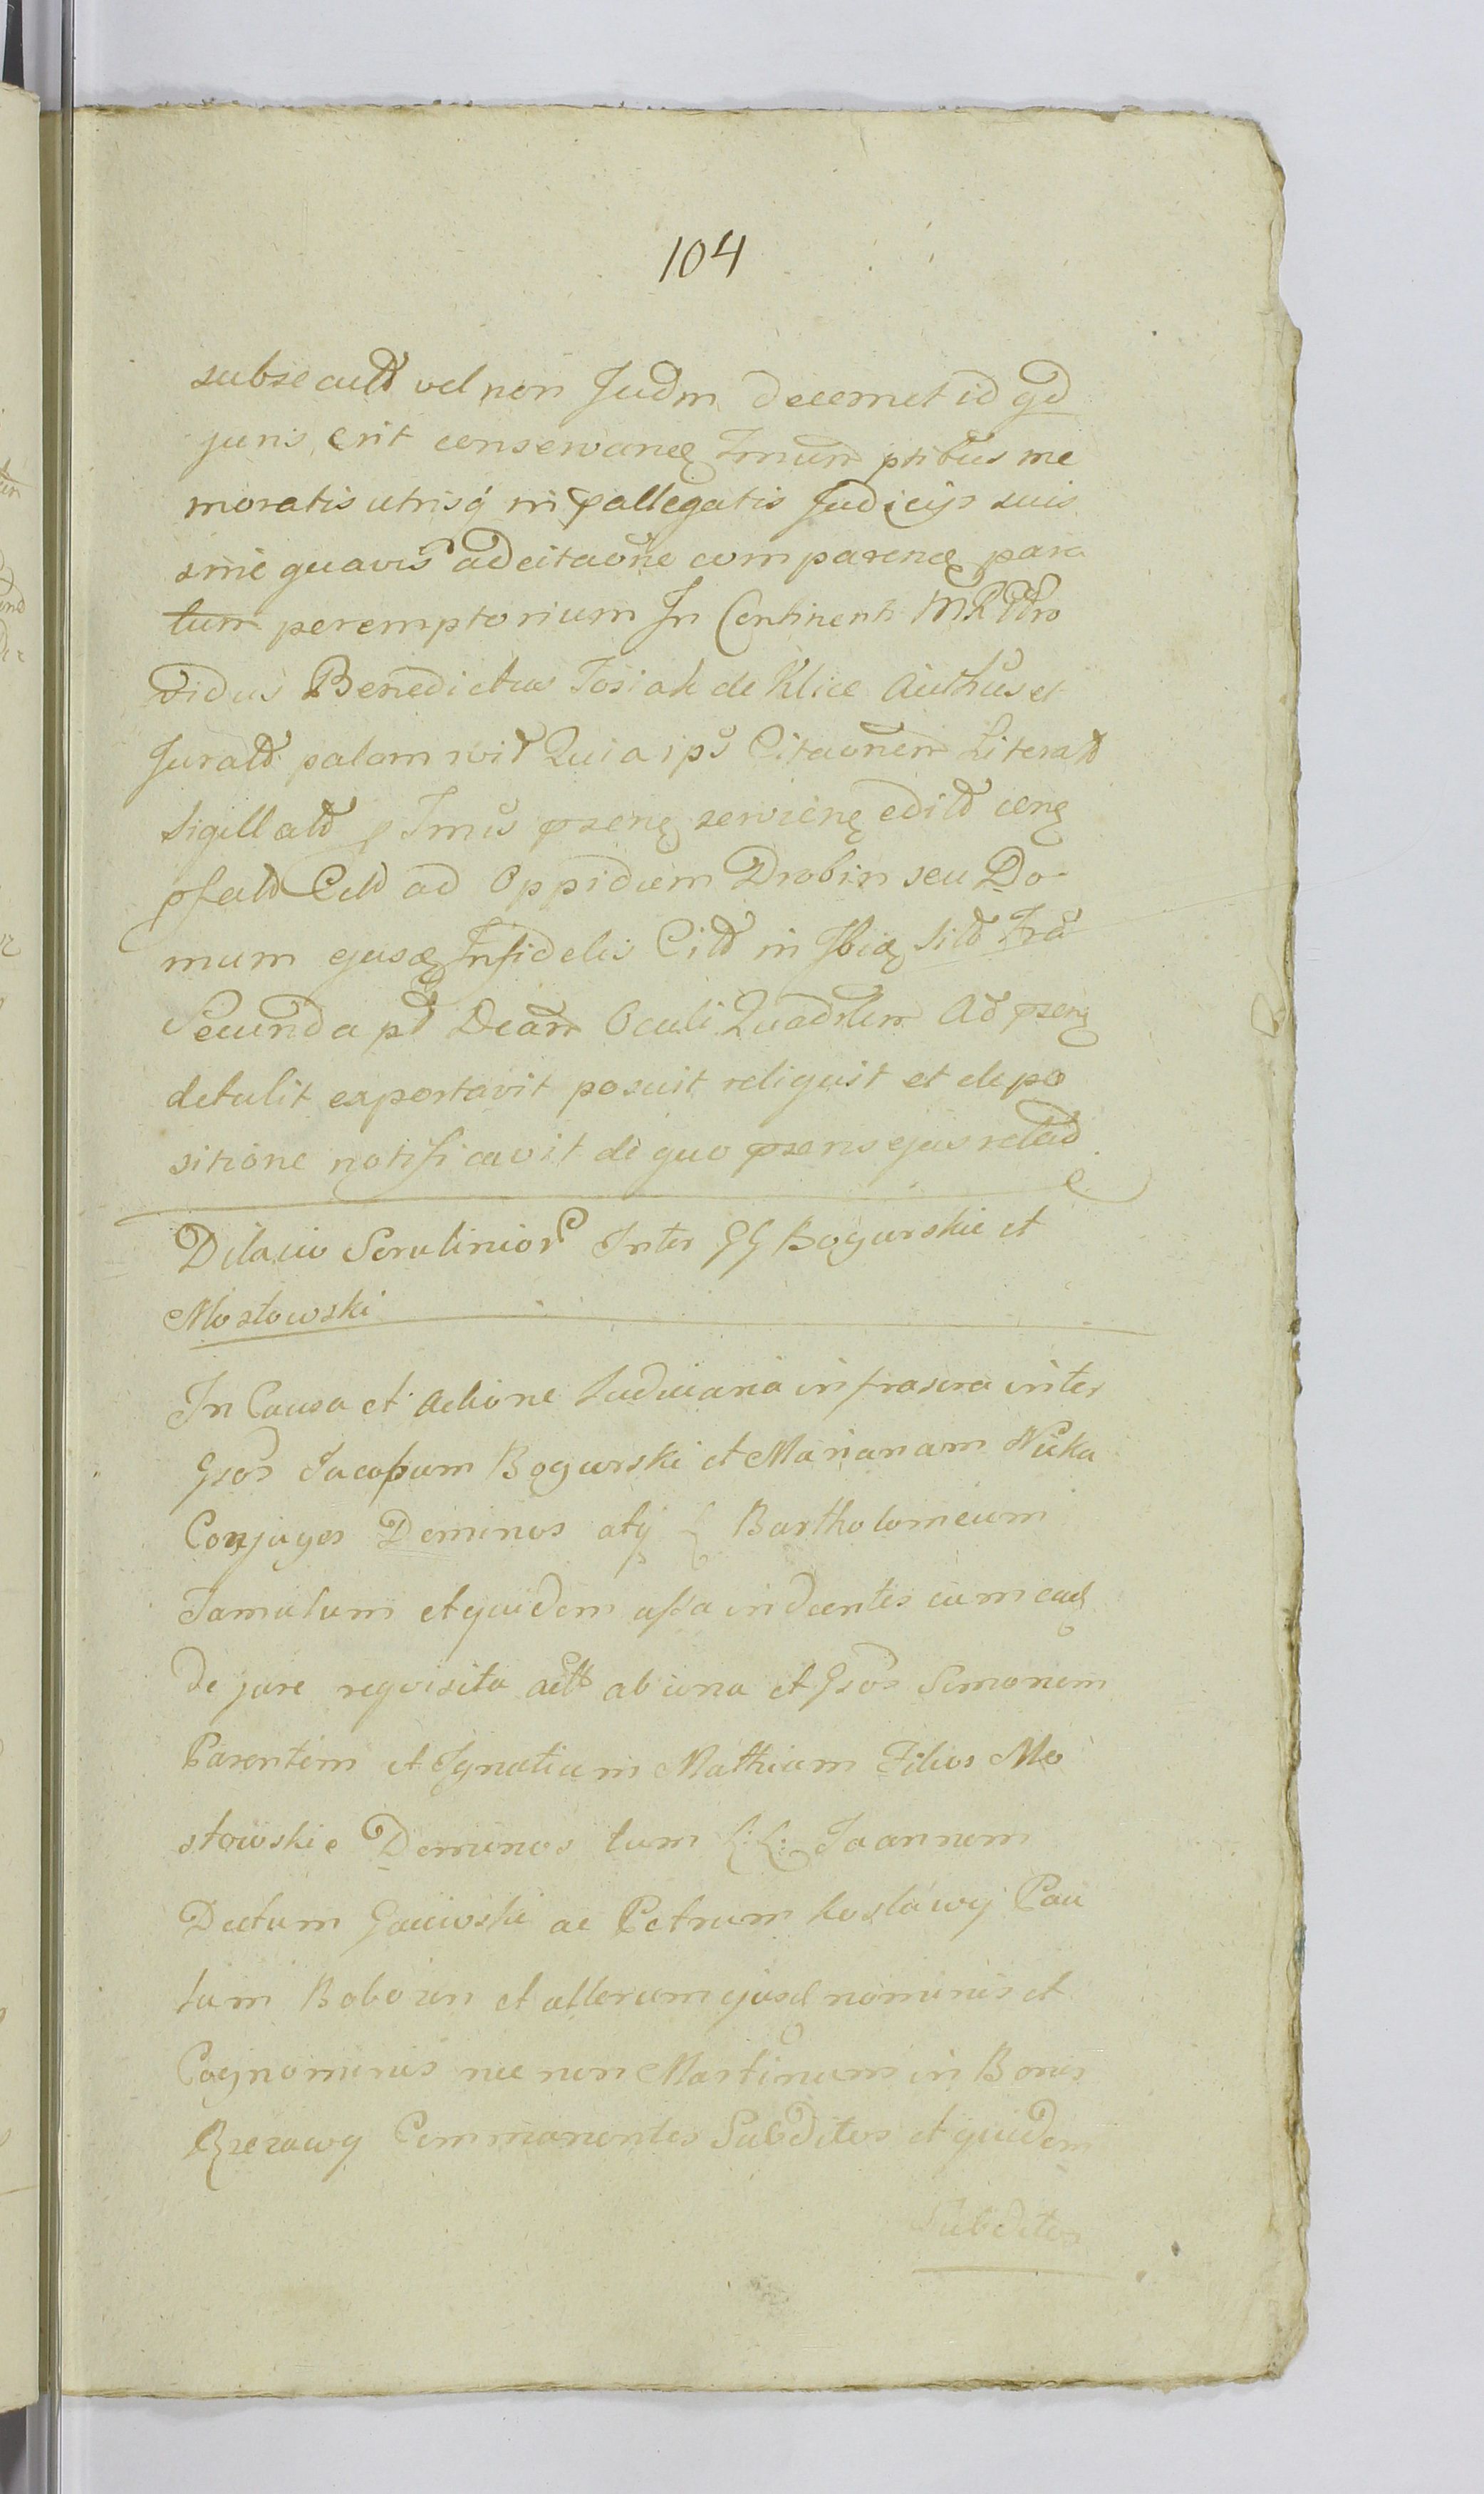 104
subsecutt vel non Judm decernet id qd
juris erit conservanɖ Tmum ptibus me
moratis utrisq in pallegatis Judicijs suis
sine quavis adcitaone comparenɖ para
tum peremptorium In Continenti Mr Pro
vidus Benedictus Tosiak de Klice Authus et
Juratt palam Quia ips Citaonem Literatt
Sigillatt p Tmis pseng editt
pfatt Citt ad Oppidum Drobin seu Do-
mum ejusɖ Infidelis Citt in Ibiɖ Sitt Fra
Secunda pt Dcam Oculi Quadrlem Ad pseng
detulit exportavit posuit reliquit et depo
sitione notificavit de quo psens ejus
Dilacio Scrutinior Inter GG Bogurskie et
Mostowski
In Causa et Actione Judiciaria infrascra inter
Gsos Jacobum Bogurski et Mariannam
Conjuges Dominos atq L Bartholomeum
Famulum et quidem
de jure requisita actt ab una et Gsos Simonem
Parentem et Ignatium Mathium Filios Mo
stowskie Dominos tum L: L: Joannem
Dictum ac Petrum Pau
lum et alterum ejusd nominis et
Cognominis nec non Martinum in Bonis
Commanentes Subditos et quidem
Subditos